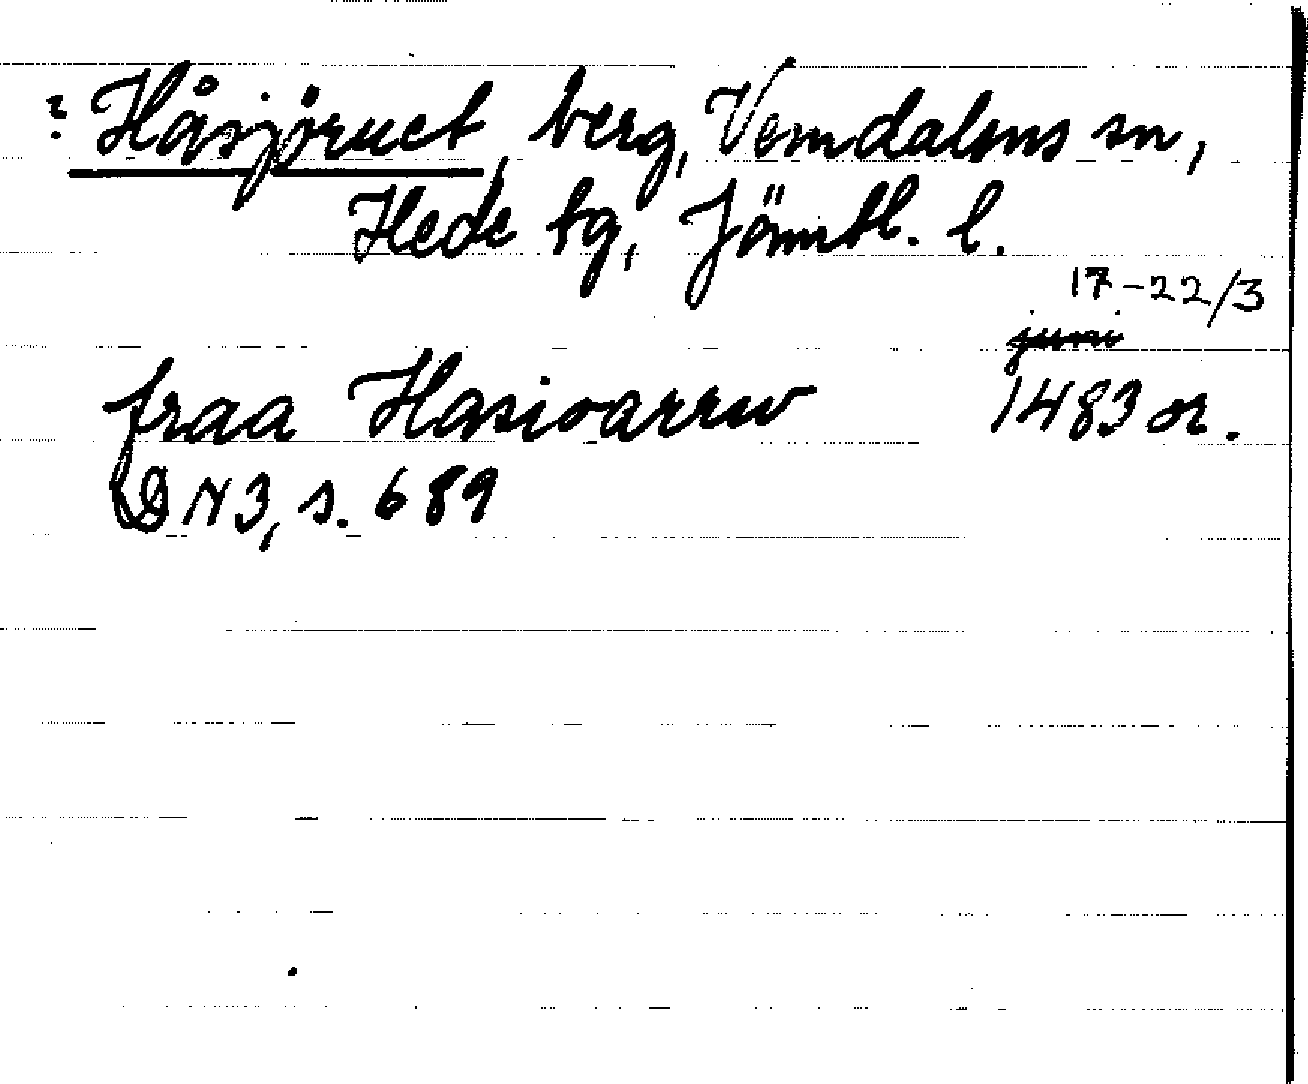 ? Håsjøruet, berg, Vemdalens sn,
Hede tg, Jämtl. l.
17-22/3
juni
fraa Hasioarrw 1483 or.
DN 3, s. 689